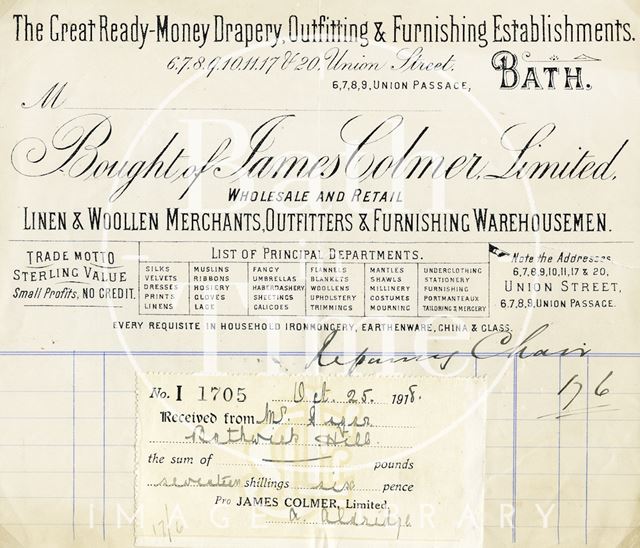 The Great Ready-Money Drapery, Outfitting & Furnishing Establishments.
6,7,8,9,10,11,17 & 20, Union Street,
6,7,8,9, Union Passage,
BATH.
M
Bought of James Colmer, Limited,
WHOLESALE AND RETAIL
LINEN & WOOLLEN MERCHANTS, OUTFITTERS & FURNISHING WAREHOUSEMEN.
TRADE MOTTO
STERLING VALUE
Small Profits, NO CREDIT.
LIST OF PRINCIPAL DEPARTMENTS.
SILKS
VELVETS
DRESSES
PRINTS
LINENS
MUSLINS
RIBBONS
HOSIERY
GLOVES
LACE
FANCY
UMBRELLAS
HABERDASHERY
SHEETINGS
CALICOES
FLANNELS
BLANKETS
WOOLLENS
UPHOLSTERY
TRIMMINGS
MANTLES
SHAWLS
MILLINERY
COSTUMES
MOURNING
UNDERCLOTHING
STATIONERY
FURNISHING
PORTMANTEAUX
TAILORING & MERCERY
Note the Addresses
6,7,8,9,10,11,17 & 20,
UNION STREET,
6,7,8,9, UNION PASSAGE.
EVERY REQUISITE IN HOUSEHOLD IRONMONGERY, EARTHENWARE, CHINA & GLASS.
Repairing Chair
17 6
No. I 1705 Oct. 25. 1918.
Received from Mr.
Bathwick Hill.
the sum of pounds
seventeen shillings six pence
Pro JAMES COLMER, Limited.
A. Aldridge
17/6
Bath in Time
IMAGE LIBRARY